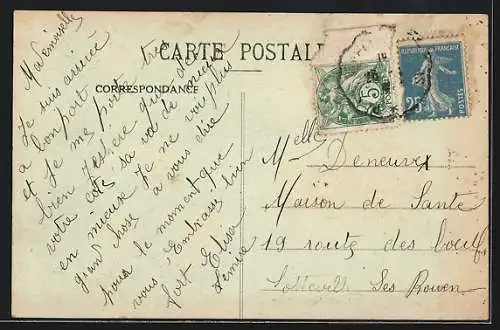 CARTE POSTALE
CORRESPONDANCE
Mademoiselle
Je suis arrivé
a bon port
et je me porte très
bien J'espère que de
votre coté sa va de
en mieux Je ne voi plus
grand chose a vous dire
pour le moment que
vous Embrasser bien
fort Elisa
RÉPUBLIQUE FRANÇAISE
25
POSTES
5
Melle Deneuve
Maison de Santé
19 route des boeufs
Sotteville Les Rouen